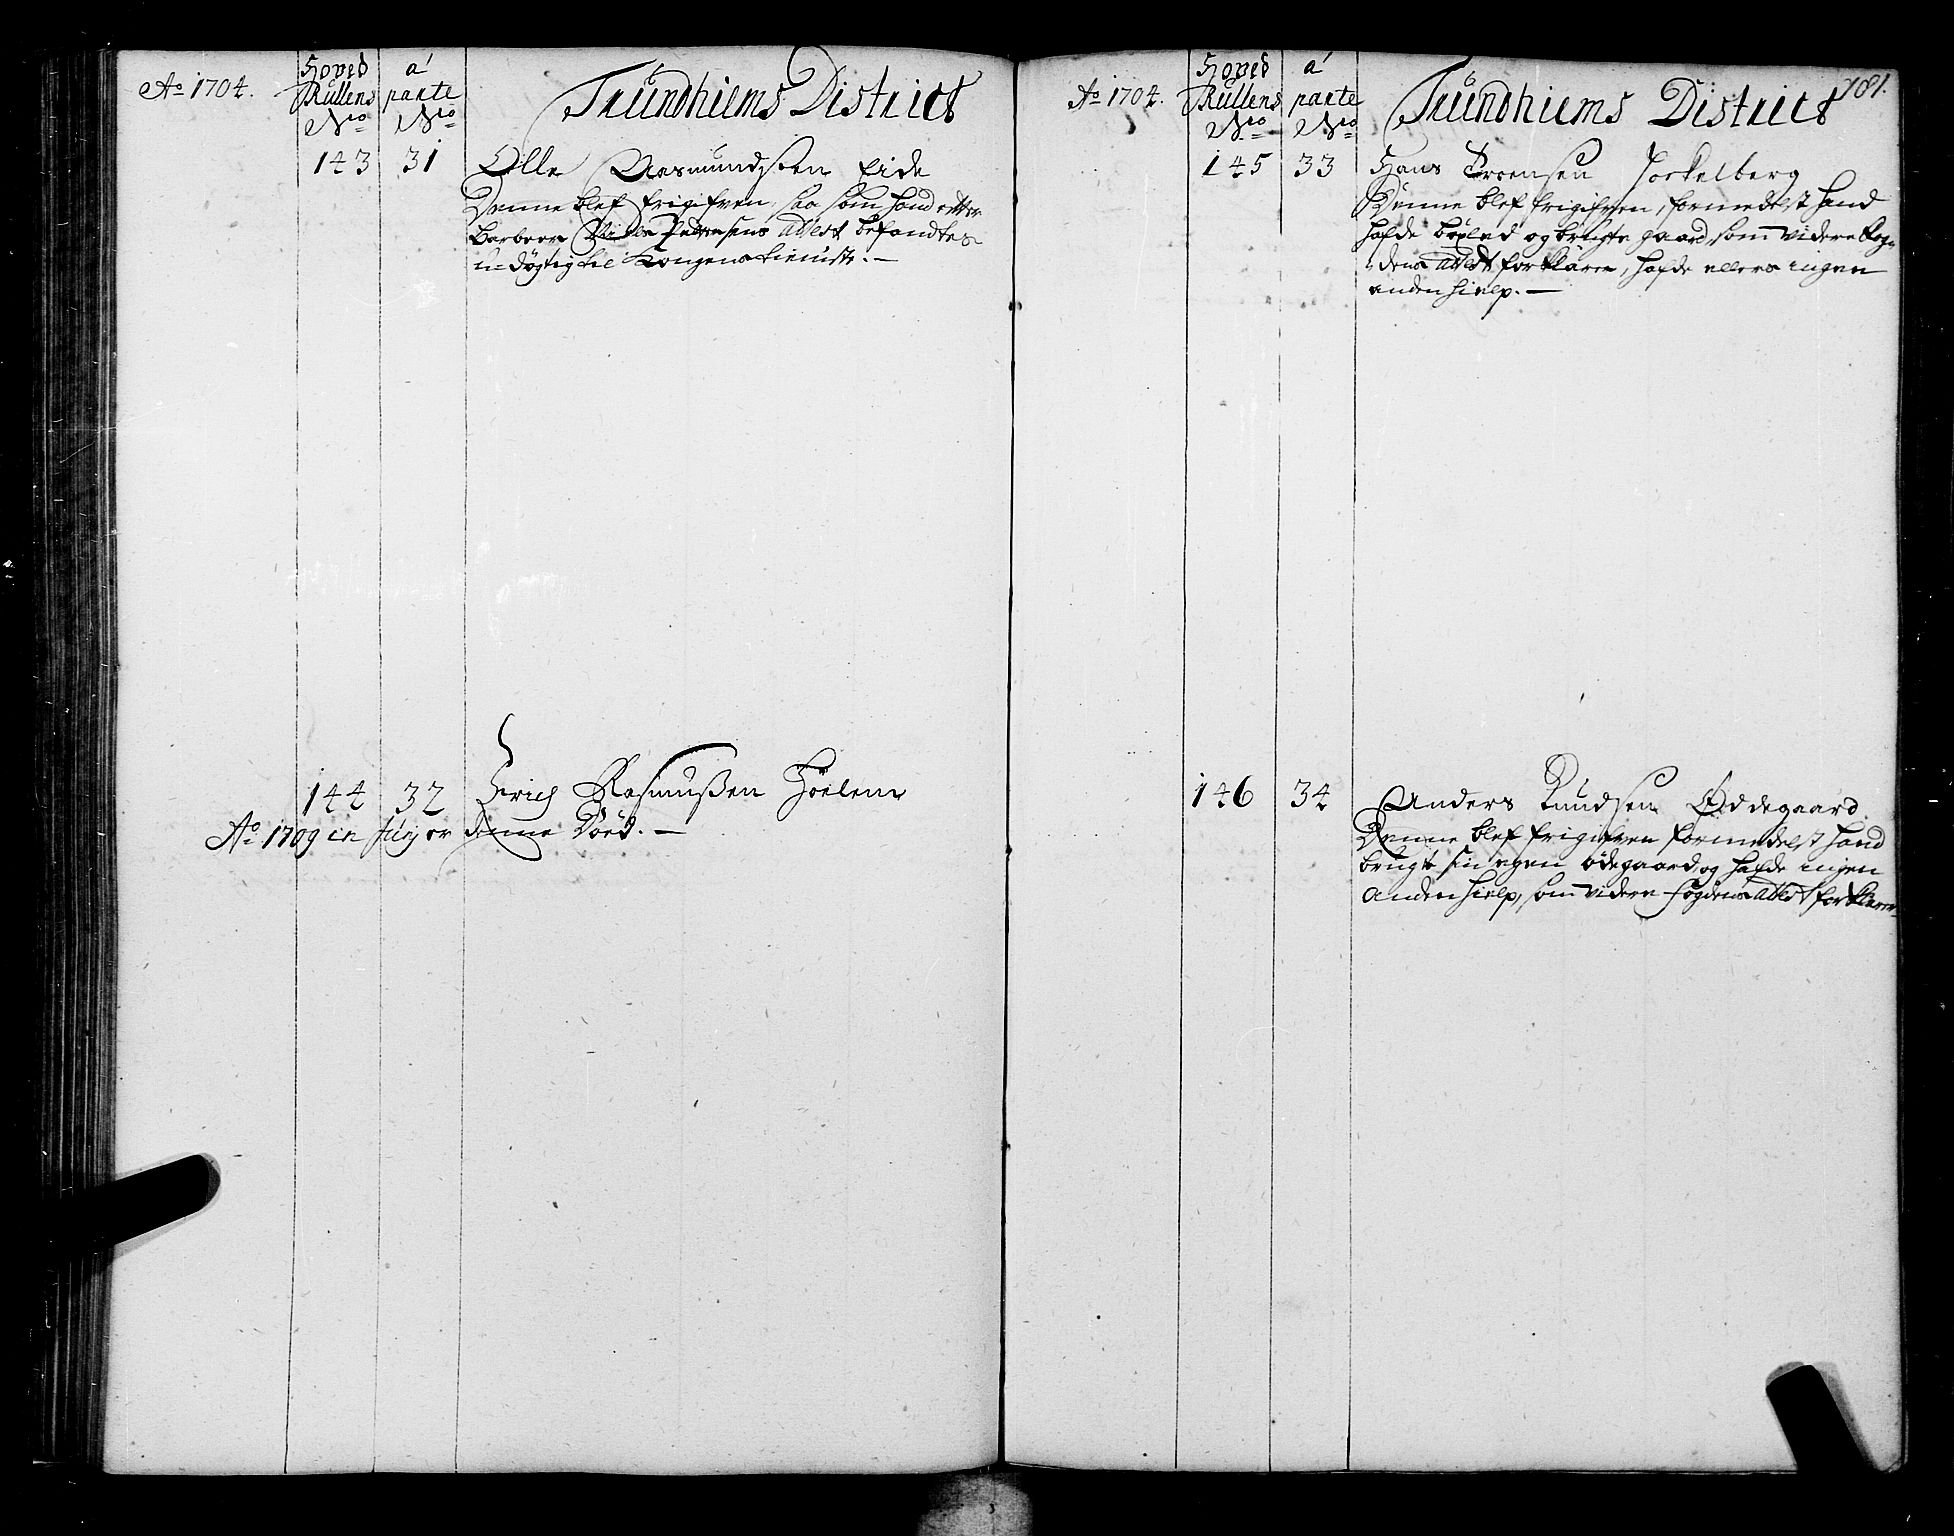 Ao 1704.
Hoved Rullens No
a' parte No
Trundhiems District
143 31 Olle Aasmundsøen Eide
Denne blef frigifven, saa som hand efter
Barberer Pedersens Attest befandtes
u-døgtig til Kongens tieniste. —
144 32 Erich Rasmußen Hoelem
Ao 1709 in Junj er denne Død. —
Ao 1704.
Hoved Rullens No
a' parte No
Trundhiems District
181.
145 33 Hans Joensen Jockelberg
Denne blef frigifven, formedelst hand
hafde böxled og brugte gaard, som videre fog-
dens Attest forklarer, hafde ellers ingen
anden hielp. —
146 34 Anders Knudsen Ødegaard
Denne blef frigifven formedelst hand
brugte sin egen ødegaard, og hafde ingen
anden hielp, som videre fogdens Attest forklarer